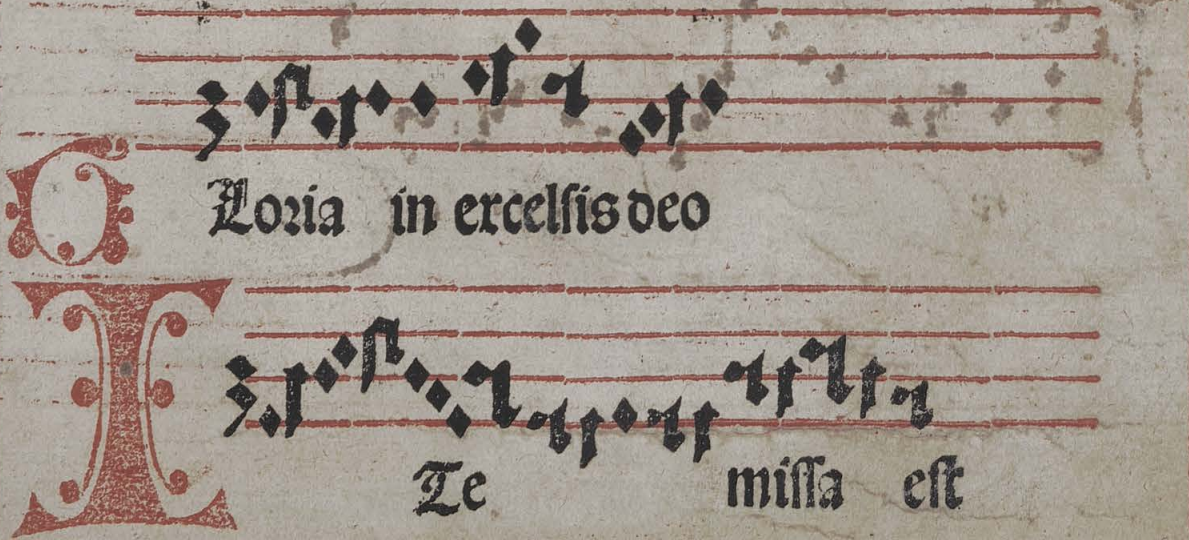 GLoria in excelſis deo
ITe miſſa eſt